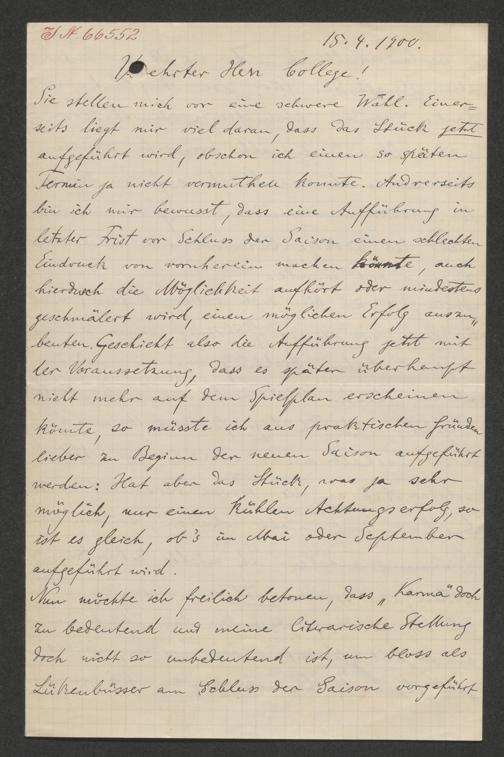 J.N. 66552
15.4.1900.
Verehrter Herr College!
Sie stellen mich vor eine schwere Wahl. Einer=
seits liegt mir viel daran, dass das Stück jetzt
aufgeführt wird, obschon ich einen so späten
Termin ja nicht vermuthen konnte. Andrerseits
bin ich mir bewusst, dass eine Aufführung in
letzter Frist vor Schluss der Saison einen schlechten
Eindruck von vornherein machen könnte, auch
hierdurch die Möglichkeit aufhört oder mindestens
geschmälert wird, einen möglichen Erfolg auszu„
beuten. Geschieht also die Aufführung jetzt mit
der Voraussetzung, dass es später überhaupt
nicht mehr auf dem Spielplan erscheinen
könnte, so müsste ich aus praktischen Gründen
lieber zu Beginn der neuen Saison aufgeführt
werden: Hat aber das Stück, was ja sehr
möglich, nur einen kühlen Achtungserfolg, so
ist es gleich, ob's im Mai oder September
aufgeführt wird.
Nun möchte ich freilich betonen, dass „Karma" doch
zu bedeutend und meine literarische Stellung
doch nicht so unbedeutend ist, um bloss als
Lükenbüsser am Schluss der Saison vorgeführt